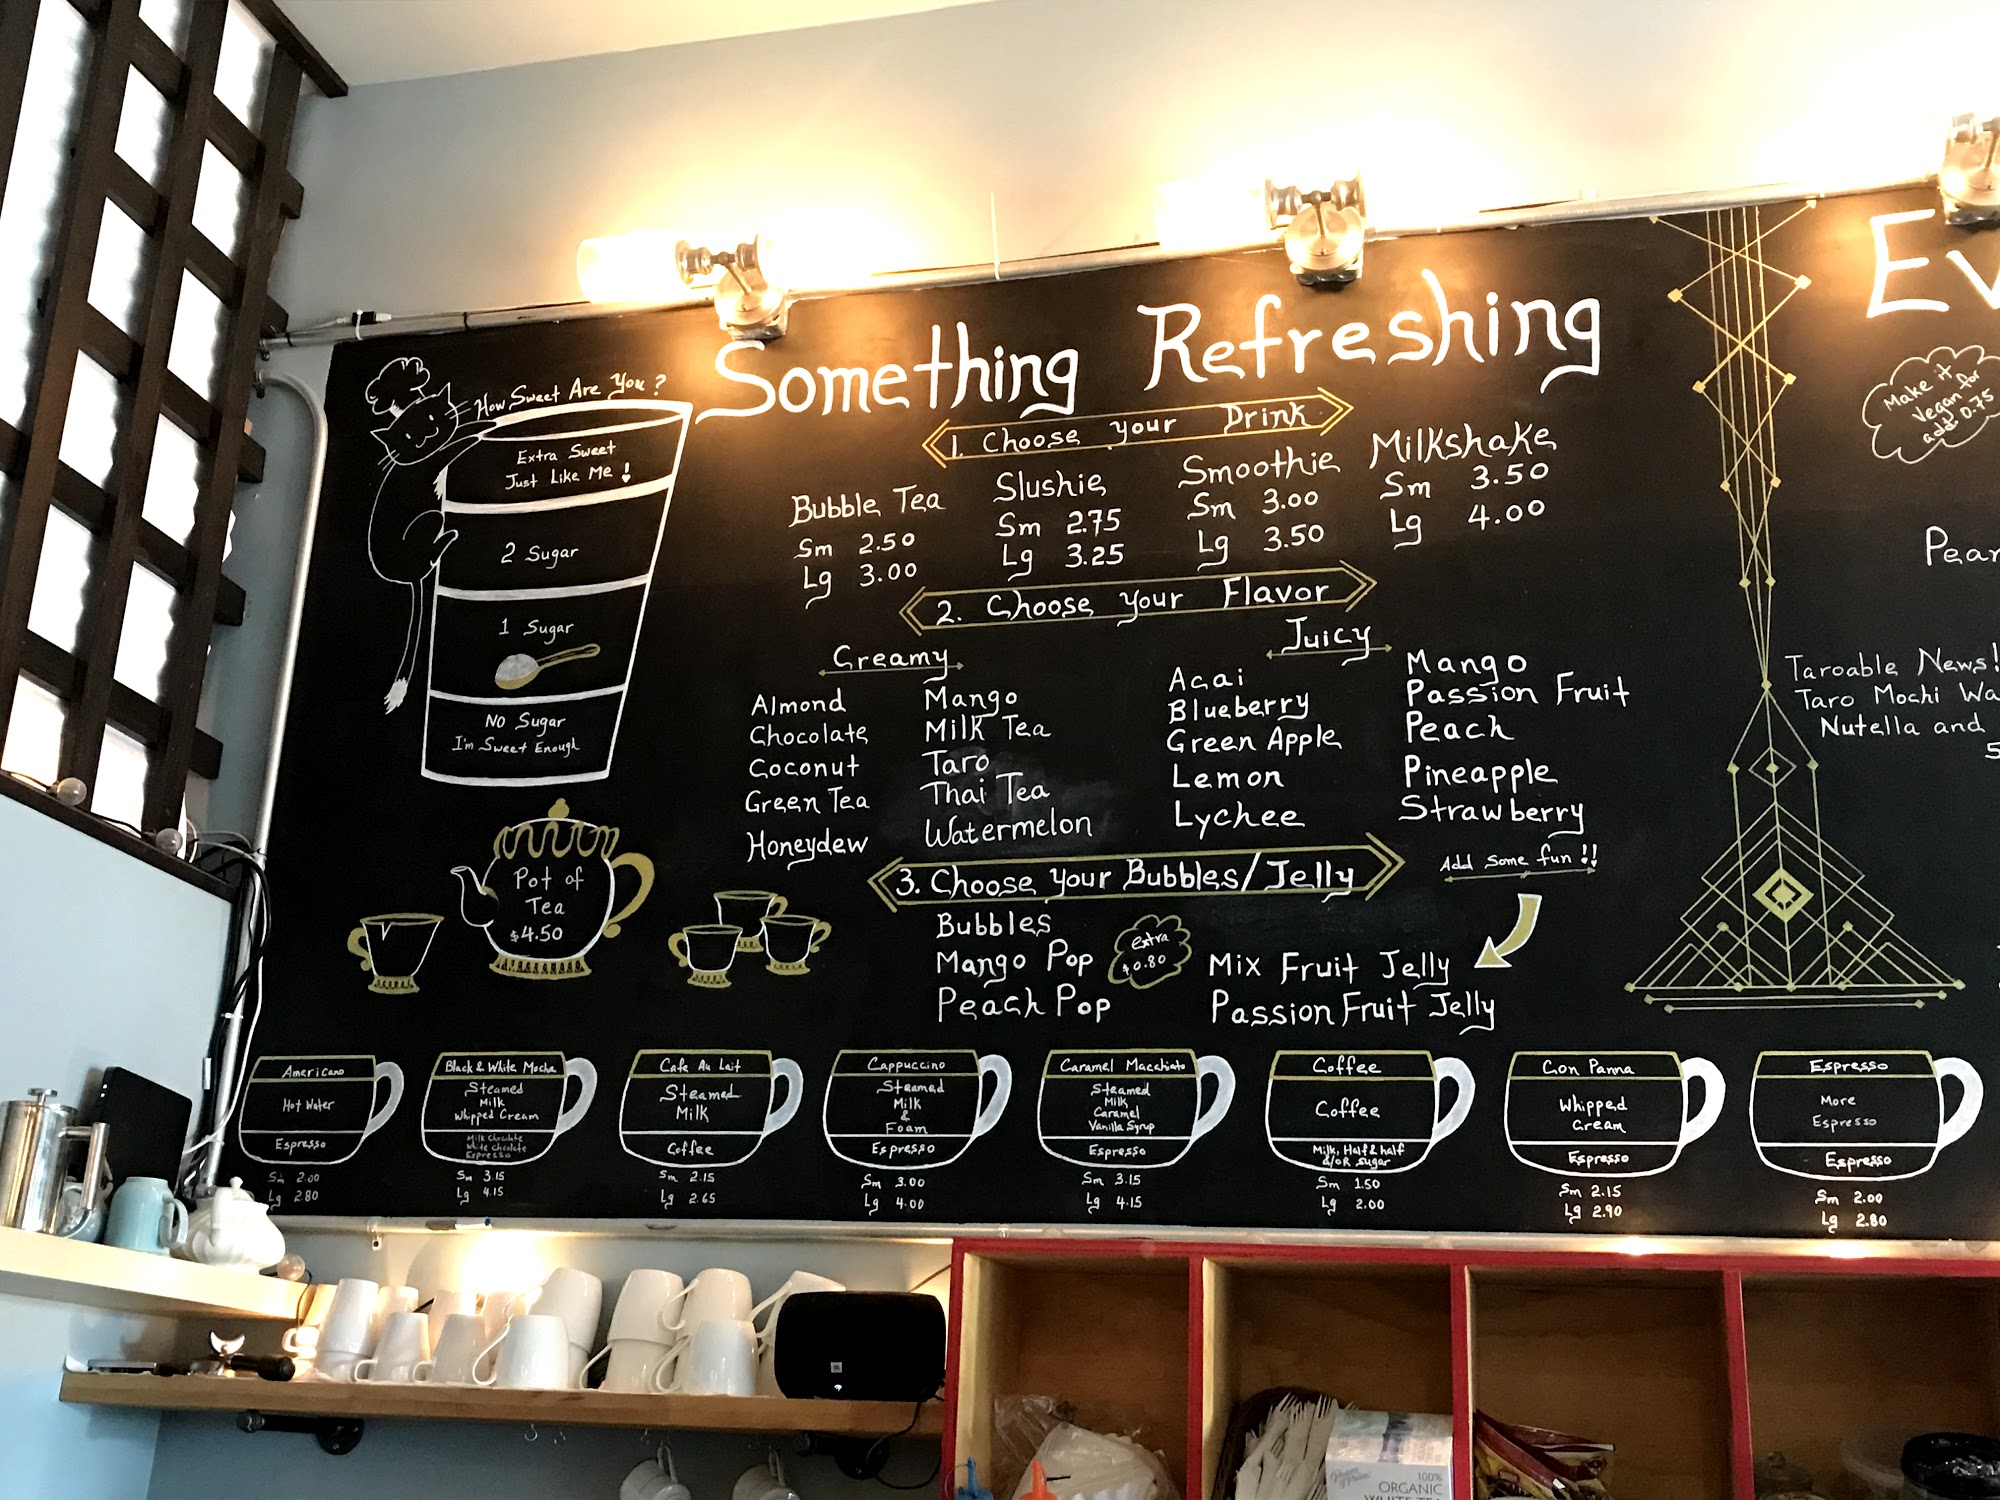 How Sweet Are You?
Extra Sweet
Just Like Me!
2 Sugar
1 Sugar
No Sugar
I'm Sweet Enough
Pot of
Tea
$4.50
Something Refreshing
1. Choose your Drink
Bubble Tea
Sm 2.50
Lg 3.00
Slushie
Sm 2.75
Lg 3.25
Smoothie
Sm 3.00
Lg 3.50
Milkshake
Sm 3.50
Lg 4.00
2. Choose your Flavor
Creamy
Almond
Chocolate
Coconut
Green Tea
Honeydew
Mango
Milk Tea
Taro
Thai Tea
Watermelon
Juicy
Acai
Blueberry
Green Apple
Lemon
Lychee
Mango
Passion Fruit
Peach
Pineapple
Strawberry
3. Choose your Bubbles/Jelly
Add some fun!!
Bubbles
Mango Pop
Peach Pop
extra
$0.80
Mix Fruit Jelly
Passion Fruit Jelly
Ev
Make it
Vegan for
add 0.75
Pear
Taroable News!
Taro Mochi Wa
Nutella and
5
Americano
Hot Water
Espresso
Sm 2.00
Lg 2.80
Black & White Mocha
Steamed
Milk
Whipped Cream
Milk Chocolate
White Chocolate
Espresso
Sm 3.15
Lg 4.15
Cafe Au Lait
Steamed
Milk
Coffee
Sm 2.15
Lg 2.65
Cappuccino
Steamed
Milk
&
Foam
Espresso
Sm 3.00
Lg 4.00
Caramel Macchiato
Steamed
Milk
Caramel
Vanilla Syrup
Espresso
Sm 3.15
Lg 4.15
Coffee
Coffee
Milk, Half & half
&/OR sugar
Sm 1.50
Lg 2.00
Con Panna
Whipped
Cream
Espresso
Sm 2.15
Lg 2.90
Espresso
More
Espresso
Espresso
Sm 2.00
Lg 2.80
100%
ORGANIC
WHITE TEA